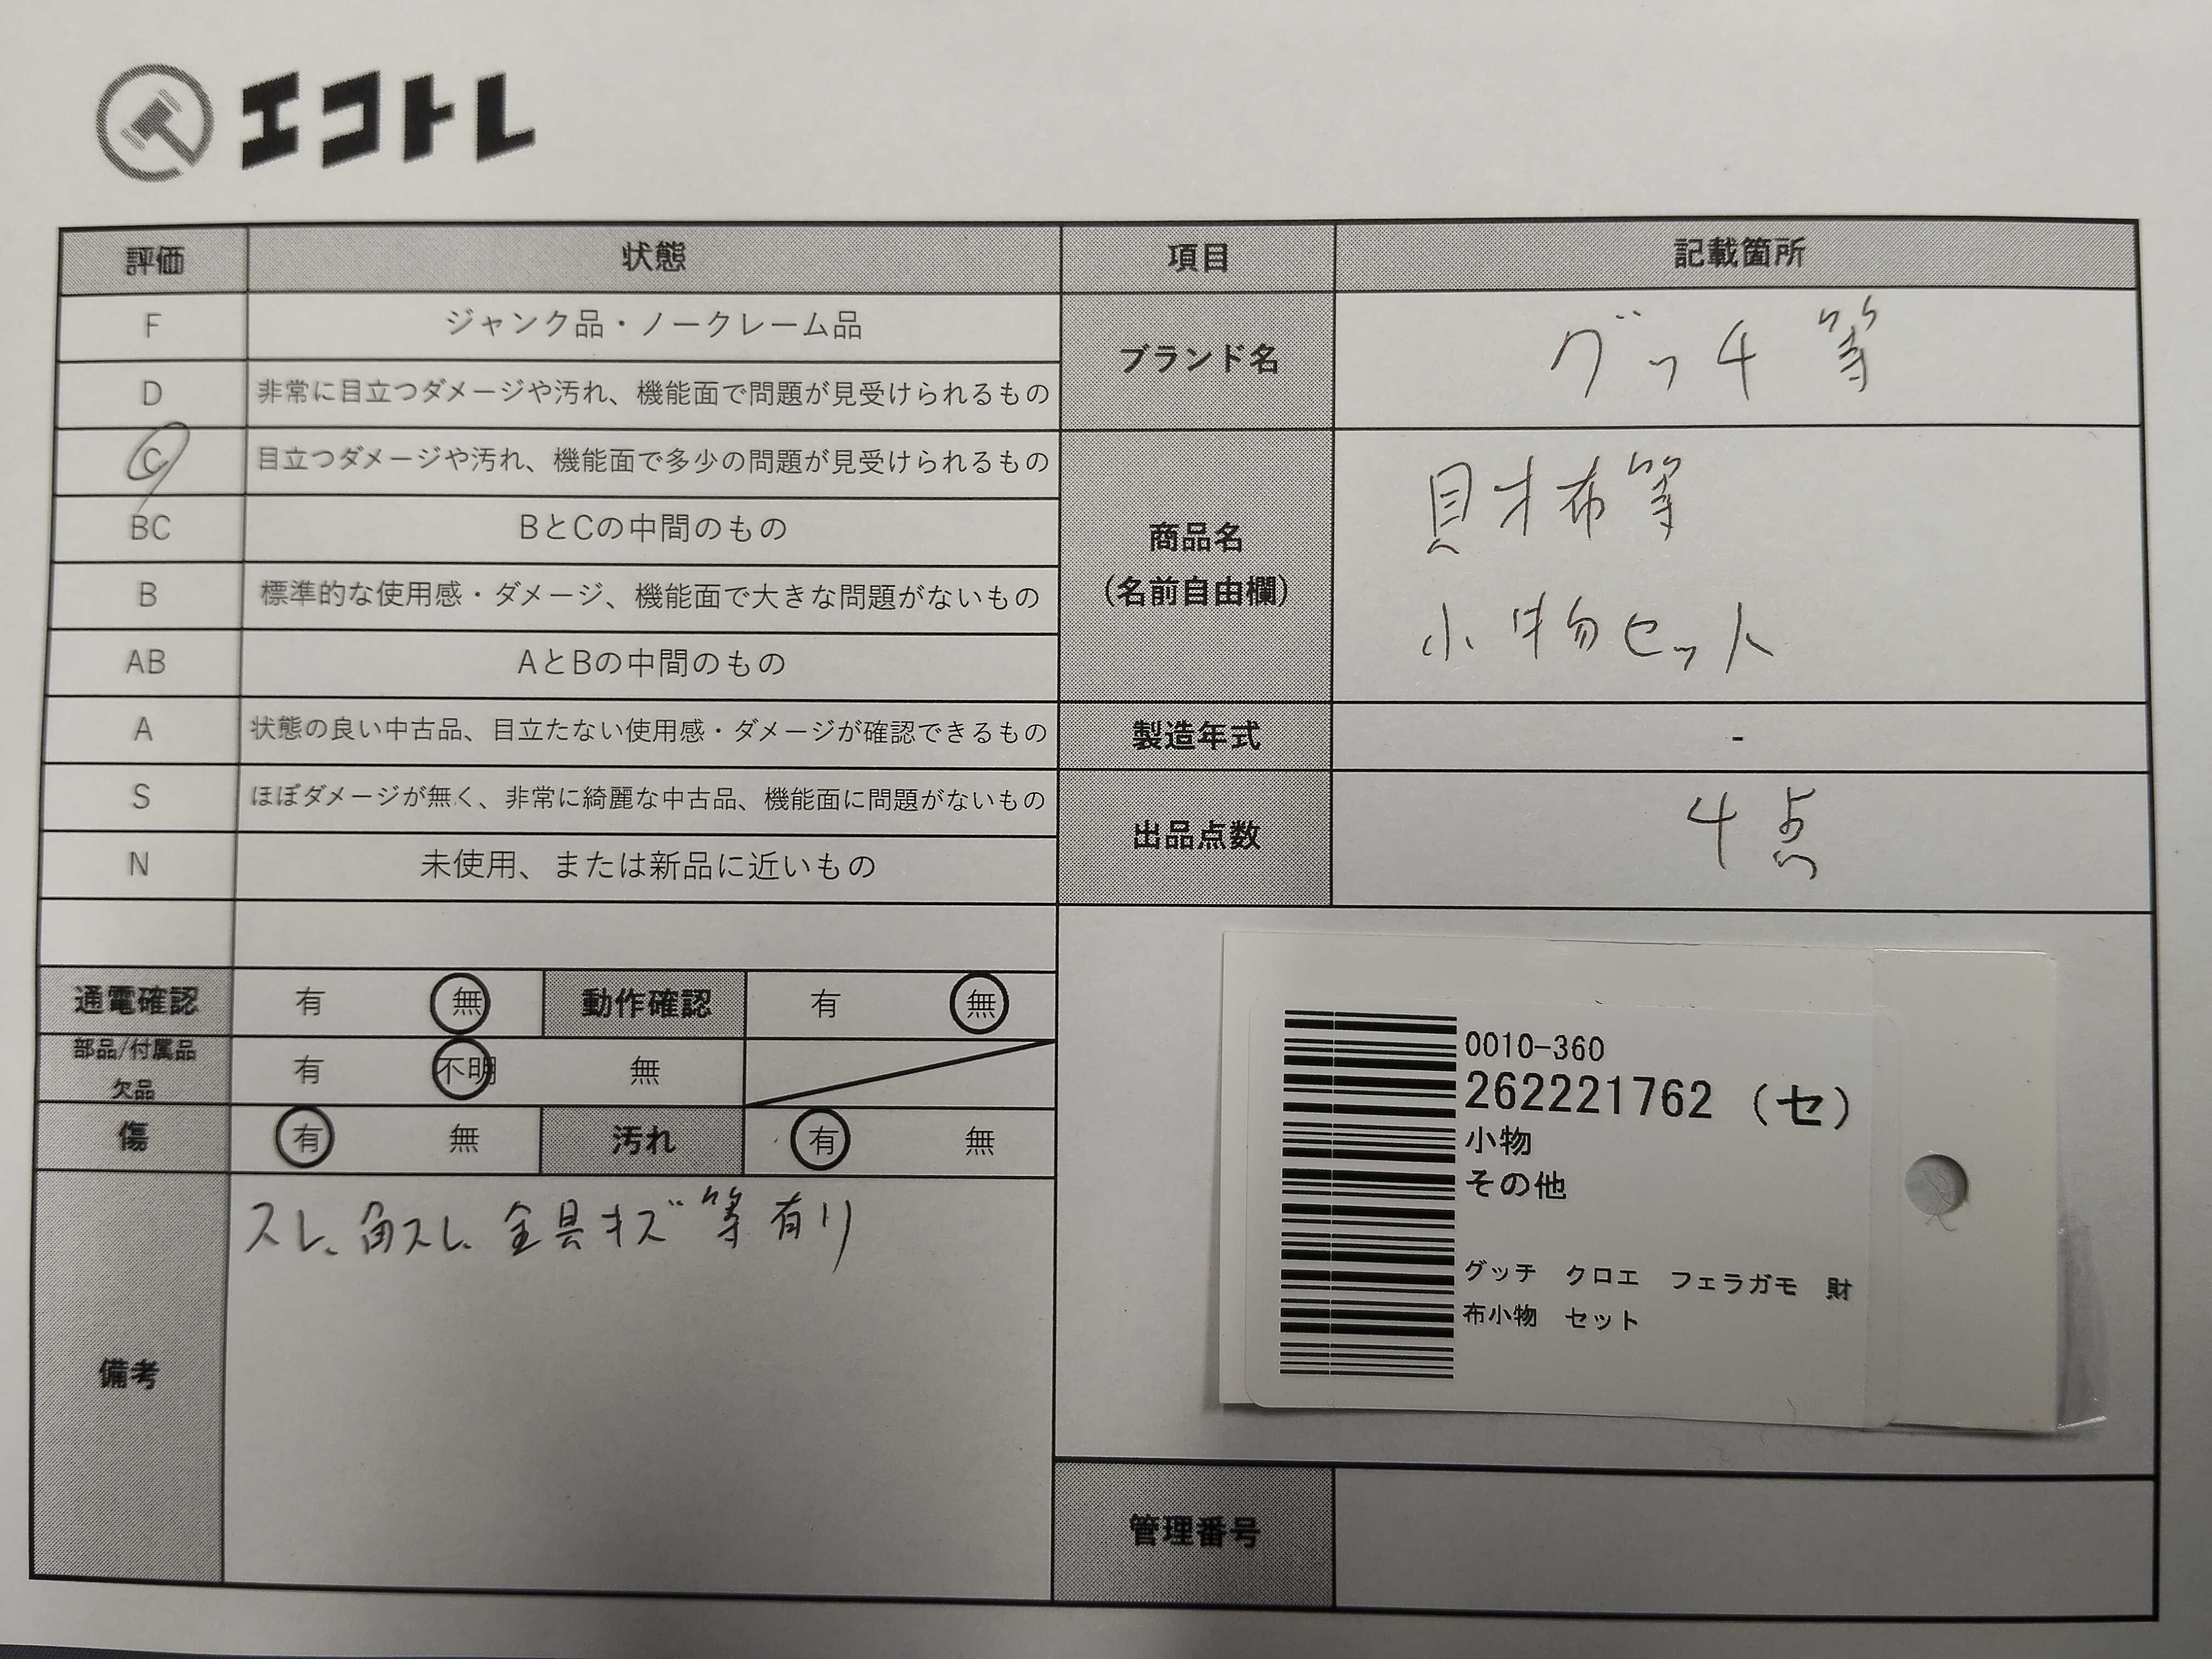 エコトレ
評価 状態 項目 記載箇所
F ジャンク品・ノークレーム品
D 非常に目立つダメージや汚れ、機能面で問題が見受けられるもの
C 目立つダメージや汚れ、機能面で多少の問題が見受けられるもの
BC BとCの中間のもの
B 標準的な使用感・ダメージ、機能面で大きな問題がないもの
AB AとBの中間のもの
A 状態の良い中古品、目立たない使用感・ダメージが確認できるもの
S ほぼダメージが無く、非常に綺麗な中古品、機能面に問題がないもの
N 未使用、または新品に近いもの
通電確認 有 無 動作確認 有 無
部品/付属品
欠品 有 不明 無
傷 有 無 汚れ 有 無
備考 スレ、角スレ、金具キズ等有り
ブランド名 グッチ 等
商品名
(名前自由欄)
財布等
小物セット
製造年式 -
出品点数 4点
0010-360
262221762 (セ)
小物
その他
グッチ クロエ フェラガモ 財
布小物 セット
管理番号